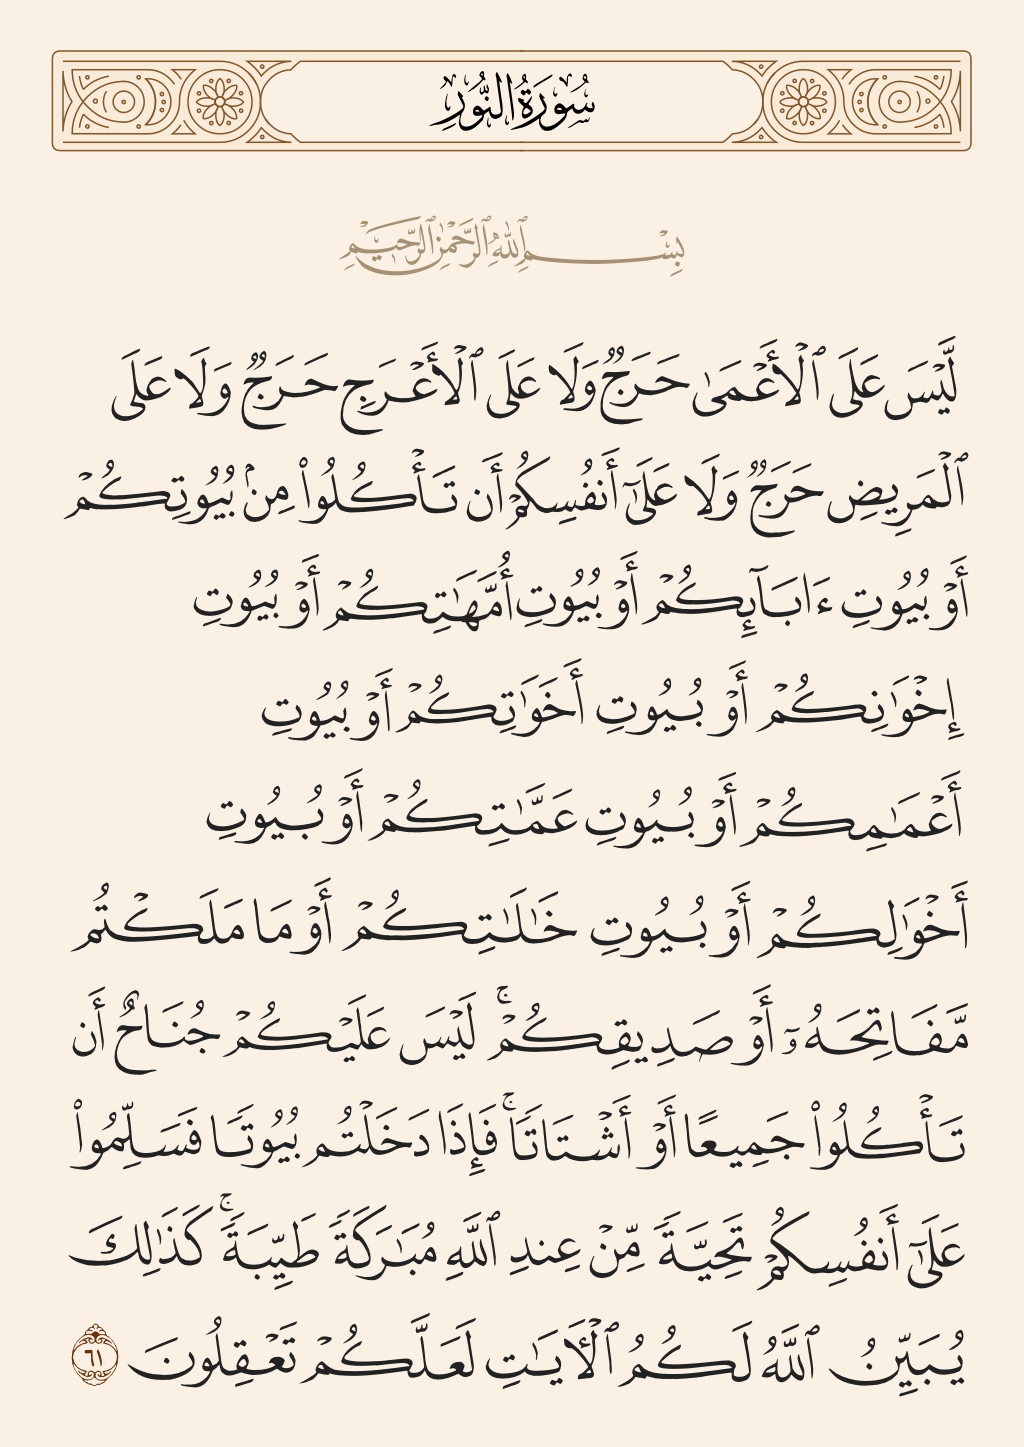 سُورَةُ النُّورِ
بِسْمِ ٱللَّهِ ٱلرَّحْمَٰنِ ٱلرَّحِيمِ
لَّيْسَ عَلَى ٱلْأَعْمَىٰ حَرَجٌ وَلَا عَلَى ٱلْأَعْرَجِ حَرَجٌ وَلَا عَلَى
ٱلْمَرِيضِ حَرَجٌ وَلَا عَلَىٰٓ أَنفُسِكُمْ أَن تَأْكُلُوا۟ مِنۢ بُيُوتِكُمْ
أَوْ بُيُوتِ ءَابَآئِكُمْ أَوْ بُيُوتِ أُمَّهَٰتِكُمْ أَوْ بُيُوتِ
إِخْوَٰنِكُمْ أَوْ بُيُوتِ أَخَوَٰتِكُمْ أَوْ بُيُوتِ
أَعْمَٰمِكُمْ أَوْ بُيُوتِ عَمَّٰتِكُمْ أَوْ بُيُوتِ
أَخْوَٰلِكُمْ أَوْ بُيُوتِ خَٰلَٰتِكُمْ أَوْ مَا مَلَكْتُم
مَّفَاتِحَهُۥٓ أَوْ صَدِيقِكُمْ ۚ لَيْسَ عَلَيْكُمْ جُنَاحٌ أَن
تَأْكُلُوا۟ جَمِيعًا أَوْ أَشْتَاتًا ۚ فَإِذَا دَخَلْتُم بُيُوتًا فَسَلِّمُوا۟
عَلَىٰٓ أَنفُسِكُمْ تَحِيَّةً مِّنْ عِندِ ٱللَّهِ مُبَٰرَكَةً طَيِّبَةً ۚ كَذَٰلِكَ
يُبَيِّنُ ٱللَّهُ لَكُمُ ٱلْـَٔايَٰتِ لَعَلَّكُمْ تَعْقِلُونَ ٦١